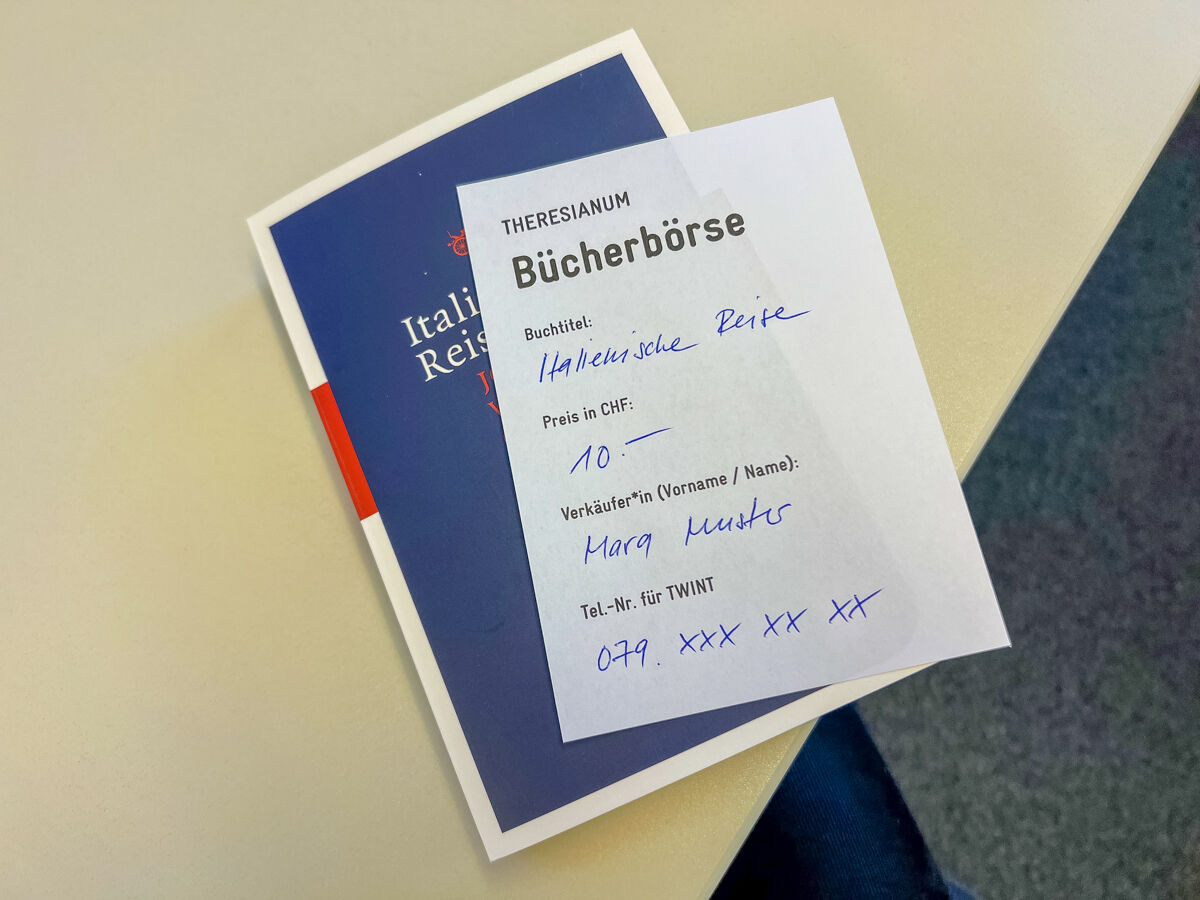 THERESIANUM
Bücherbörse
Buchtitel:
Italienische Reise
Preis in CHF:
10.–
Verkäufer*in (Vorname / Name):
Mara Muster
Tel.-Nr. für TWINT
079. XXX XX XX
Itali
Reis
J